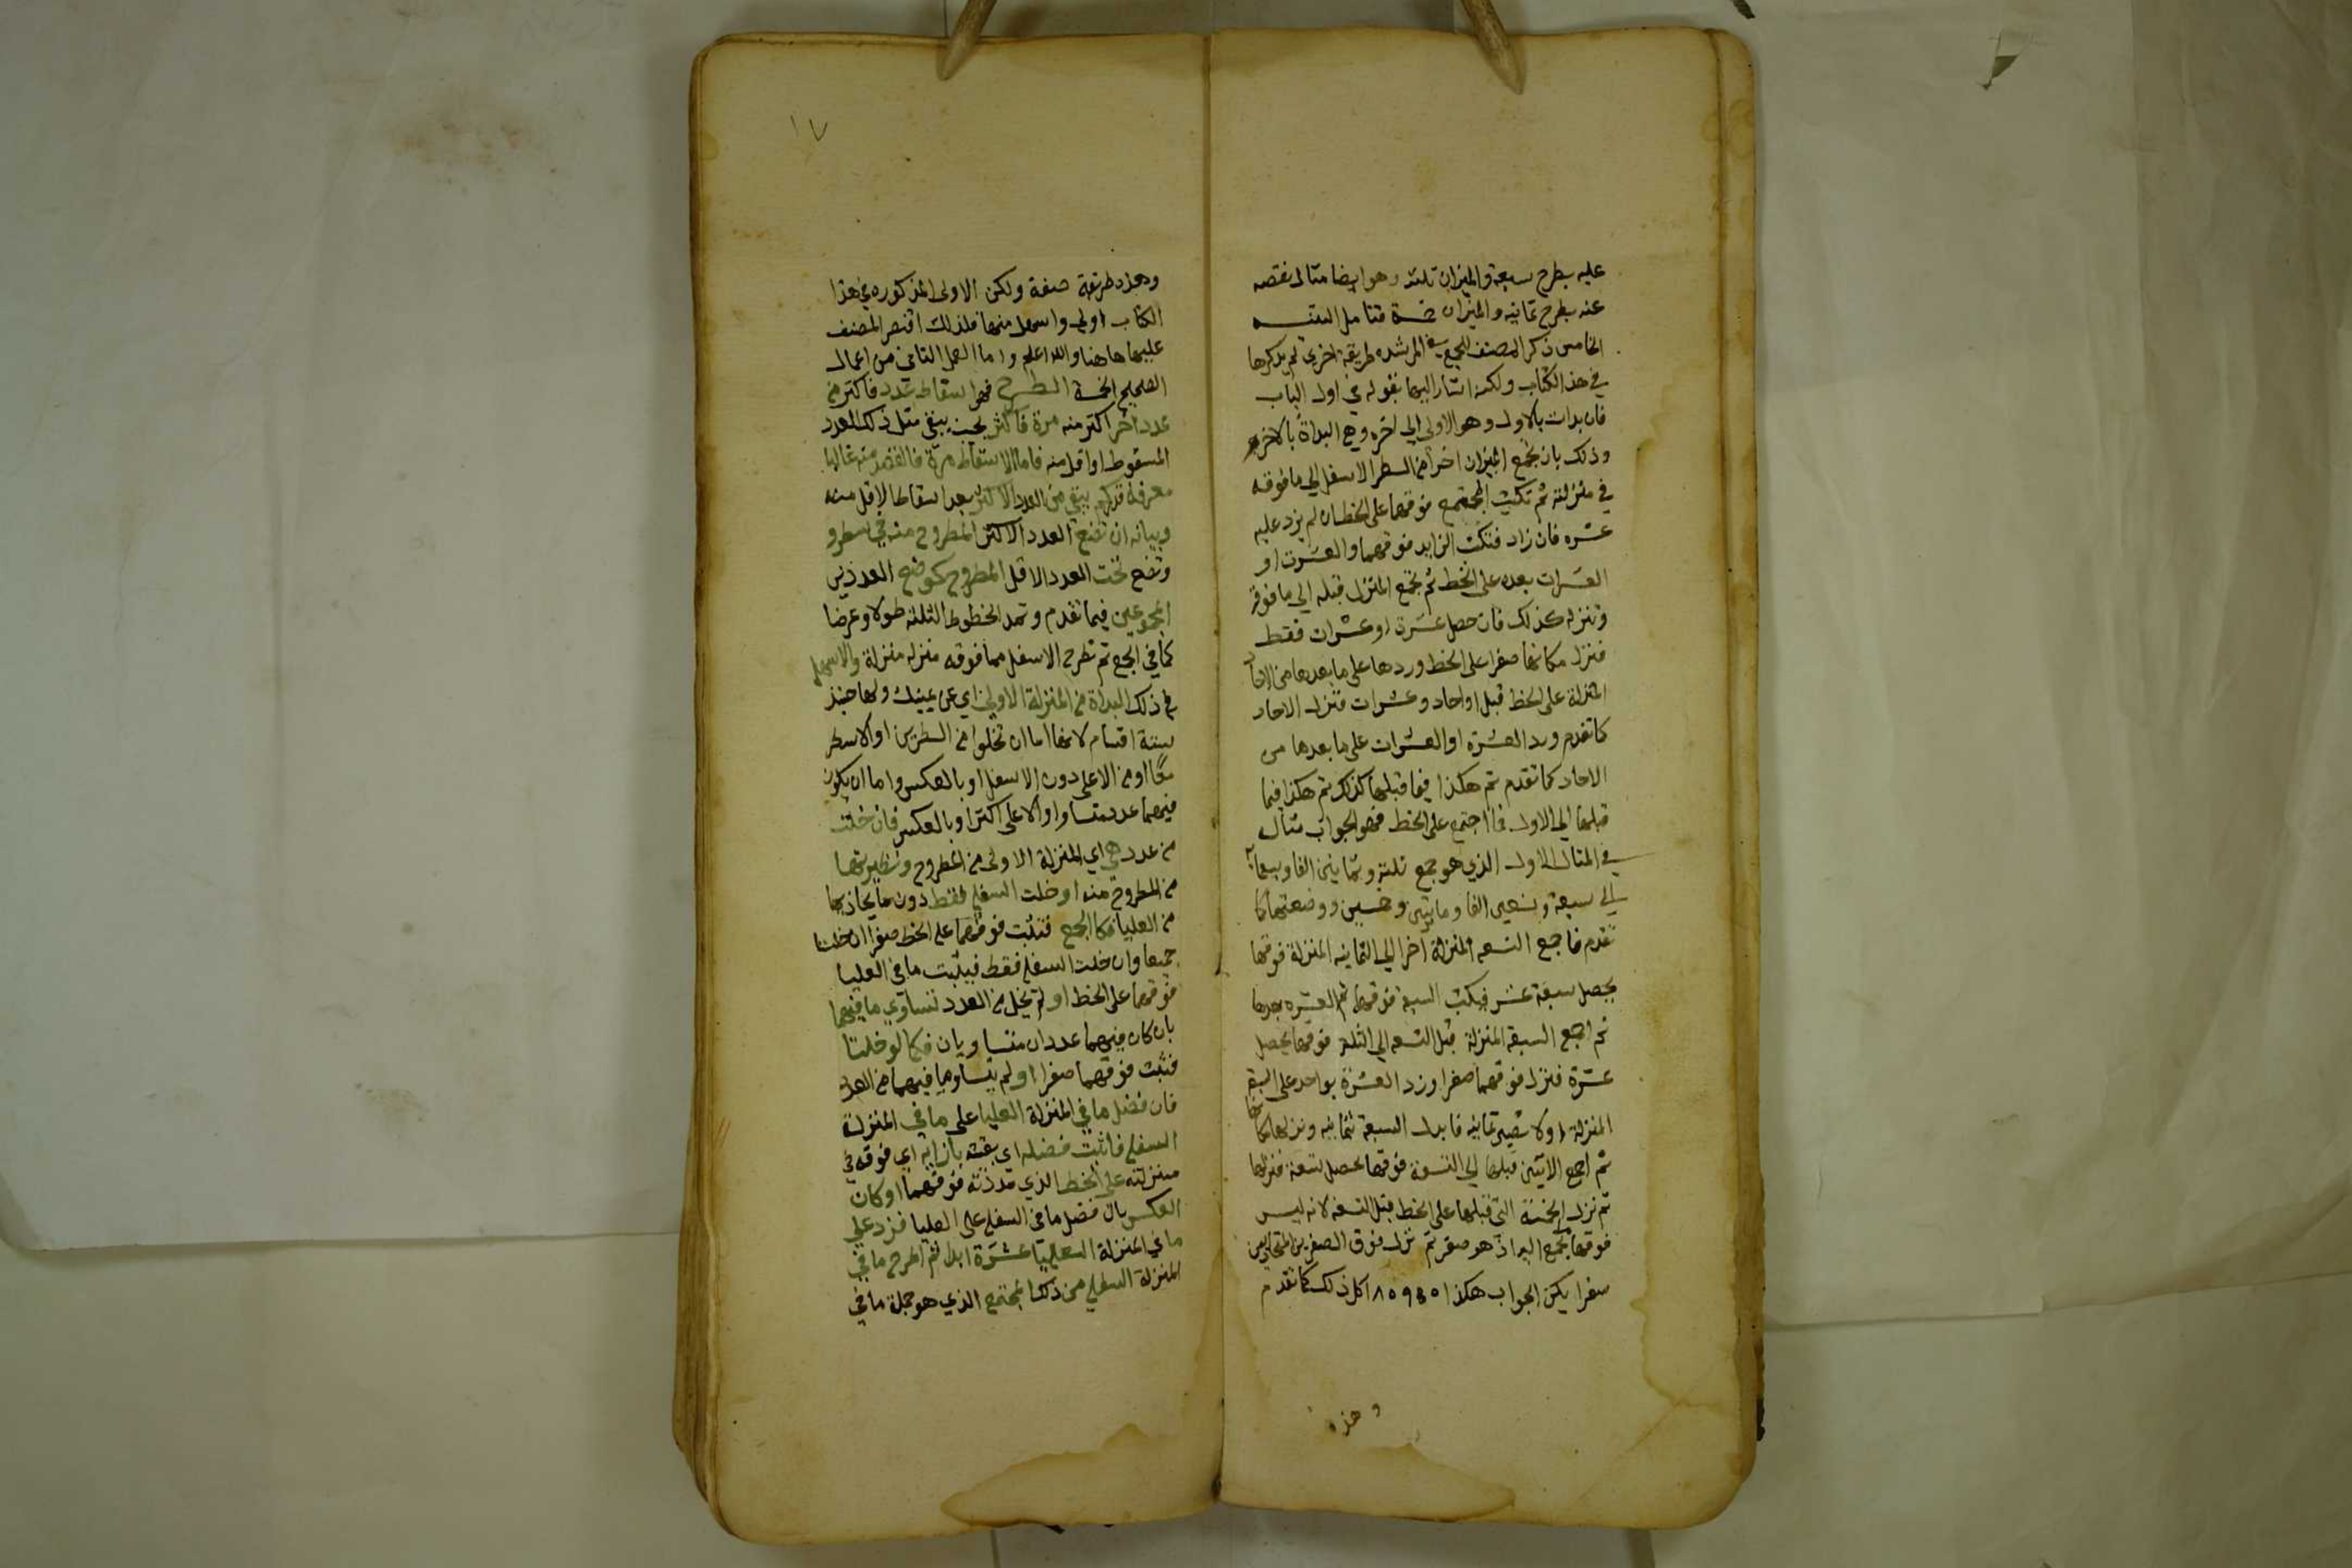 عليه بطرح سبعة والميزان ثلثه وهو ايضا مثال نقصه
عنه بطرح ثمانيه والميزان خمسة فتامل
الخامس ذكر المصنف للجمع في المرشده طريقة اخرى لم يذكرها
في هذا الكتاب ولكنه اشار اليها بقوله في اول الباب
فان بدات بالاول وهو الاولى الى اخره وهي البداة بالاخر
وذلك بان تجمع اخرا من السطر الاسفل الي ما فوقه
في منزلته ثم تكتب المجتمع فوقهما على الخط ان لم يزد عليه
عشره فان زاد فتكتب الزايد فوقهما والعشرة او
العشرات بعده على الخط ثم تجمع المنزل قبله الي ما فوقه
وتنزله كذلك فان حصل عشرة او عشرات فقط
فنزل مكانها صفرا على الخط وردها على ما بعدها من الاحاد
المنزلة على الخط قبل او احاد وعشرات فتنزل الاحاد
كما تقدم ورد العشرة او العشرات على ما بعدها من
الاحاد كما تقدم ثم هكذا فيما قبلها كذلك ثم هكذا فيما
قبلها الى الاول فما اجتمع على الخط فهو الجواب مثال
في المثال الاول الذي هو جمع ثلثة وثمانين الفا وسبعمايه
الى سبعة وتسعين الفا ومايتين وخمسين ووضعتهما كما
تقدم فاجمع التسعه المنزلة اخرا الي الثمانيه المنزلة فوقها
يحصل سبعة عشر فيكتب السبعة فوقهما ثم العشره بعدها
ثم اجمع السبعة المنزلة قبل التسعه الي الثلثه فوقها يحصل
عشرة فنزل فوقهما صفرا وزد العشرة بواحد على السبعة
المنزلة اولا تصير ثمانيه فابدل السبعة بثمانيه ونزلها مكانها
ثم اجمع الاثنين قبلها الي السبعة فوقها يحصل تسعة فنزلها
ثم نزل الخمسة التي قبلها على الخط قبل التسعه لانه ليس
فوقها تجمع اليه اذ هو صفر ثم نزل فوق الصفرين المتحاذيين
صفرا يكن الجواب هكذا ١٨٠٩٥٠ كل ذلك كما تقدم
وهذه
١٧
وهذه طريقة صعبة ولكن الاولى المذكوره في هذا
الكتاب اولى واسهل منها فلذلك اقتصر المصنف
عليها هاهنا والله اعلم واما العمل الثاني من اعمال
الصحيح الخمسة الطرح فهو اسقاط عدد فاكثر من
عدد اخر اكثر منه مرة فاكثر بحيث يبقى مثل ذلك العدد
المسقوط او اقل منه فاما الاسقاط مرة فالقصد منه غالبا
معرفة قدر كم يبقى من العدد الاكثر بعد اسقاط الاقل منه
وبيانه ان تضع العدد الاكثر المطروح منه في سطر و
وتضع تحت العدد الاقل المطروح كوضع العددين
المجموعين فيما تقدم وتمد الخطوط الثلثه طولا وعرضا
كما في الجمع ثم تطرح الاسفل مما فوقه منزلة منزلة والاسهل
في ذلك البداة من المنزلة الاولى اي عن يمينك ولها حينئذ
ستة اقسام لانها اما ان تخلوا من السطرين او الاسطر
معًا او من الاعلى دون الاسفل او بالعكس واما ان يكون
فيهما عدد متساو او الاعلى اكثر او بالعكس فان خلت
من عدد هي اي المنزلة الاولى من المطروح ونظيرتها
من المطروح منه او خلت السفلى فقط دون ما يحاذيها
من العليا فكالجمع فتثبت فوقهما على الخط صفرا ان خلتا
جميعا وان خلت السفلى فقط فيثبت ما في العليا
فوقهما على الخط او لم تخل من العدد تساوي ما فيهما
بان كان فيهما عددان متساويان فكما لو خلتا
فتثبت فوقهما صفرا او لم يتساو ما فيهما من العدد
فان فضل ما في المنزلة العليا على ما في المنزلة
السفلى فاثبت فضله اي بقيته بازايه اي فوقه في
منزلته على الخط الذي مددته فوقهما او كان
العكس بان فضل ما في السفلى على العليا فزد على
ما في المنزلة العليا عشرة ابدا ثم اطرح ما في
المنزلة السفلى من ذلك المجتمع الذي هو جملة ما في